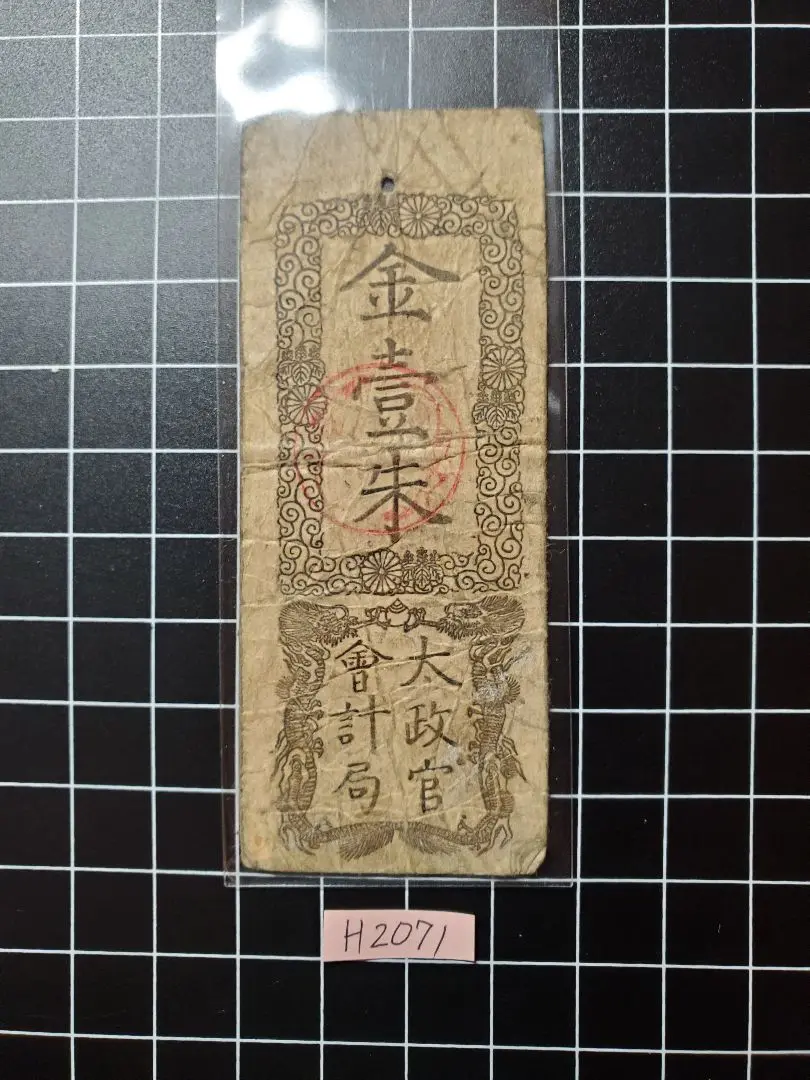 金壹朱
太政官
會計局
H2071